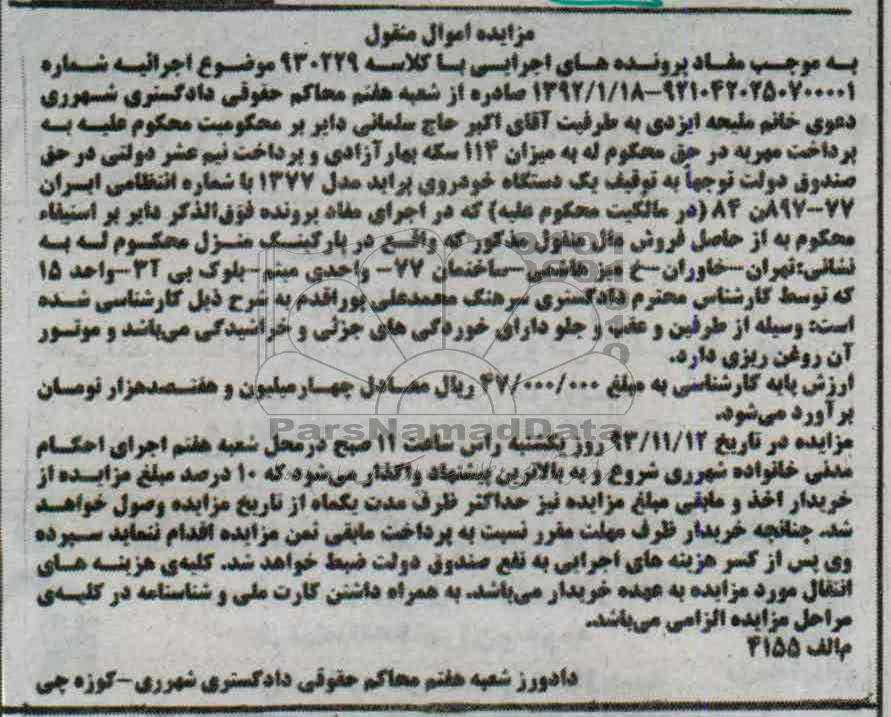 مزایده اموال منقول
به موجب مفاد پرونده های اجرایی با کلاسه ۹۳۰۲۲۹ موضوع اجرائیه شماره
۹۲۱۰۴۲۰۲۵۰۷۰۰۰۰۱-۱۳۹۲/۱/۱۸ صادره از شعبه هفتم محاکم حقوقی دادگستری شهرری
دعوی خانم ملیحه ایزدی به طرفیت آقای اکبر حاج سلمانی دایر بر محکومیت محکوم علیه به
پرداخت مهریه در حق محکوم له به میزان ۱۱۴ سکه بهارآزادی و پرداخت نیم عشر دولتی در حق
صندوق دولت توجهاً به توقیف یک دستگاه خودروی پراید مدل ۱۳۷۷ با شماره انتظامی ایران
۷۷-۸۹۷ن ۸۴ (در مالکیت محکوم علیه) که در اجرای مفاد پرونده فوق‌الذکر دایر بر استیفاء
محکوم به از حاصل فروش مال منقول مذکور که واقع در پارکینگ منزل محکوم له به
نشانی:تهران-خاوران-خ میرهاشمی-ساختمان ۷۷- واحدی میثم-بلوک بی ۳آ-واحد ۱۵
که توسط کارشناس محترم دادگستری سرهنگ محمدعلی پوراقدم به شرح ذیل کارشناسی شده
است: وسیله از طرفین و عقب و جلو دارای خوردگی های جزئی و خراشیدگی می‌باشد و موتور
آن روغن ریزی دارد.
ارزش پایه کارشناسی به مبلغ ۴۷/۰۰۰/۰۰۰ ریال معادل چهارمیلیون و هفتصدهزار تومان
برآورد می‌شود.
مزایده در تاریخ ۹۳/۱۱/۱۲ روز یکشنبه راس ساعت ۱۱ صبح درمحل شعبه هفتم اجرای احکام
مدنی خانواده شهرری شروع و به بالاترین پیشنهاد واگذار می‌شود که ۱۰ درصد مبلغ مزایده از
خریدار اخذ و مابقی مبلغ مزایده نیز حداکثر ظرف مدت یکماه از تاریخ مزایده وصول خواهد
شد. چنانچه خریدار ظرف مهلت مقرر نسبت به پرداخت مابقی ثمن مزایده اقدام ننماید سپرده
وی پس از کسر هزینه های اجرایی به نفع صندوق دولت ضبط خواهد شد. کلیه‌ی هزینه های
انتقال مورد مزایده به عهده خریدار می‌باشد. به همراه داشتن کارت ملی و شناسنامه در کلیه‌ی
مراحل مزایده الزامی می‌باشد.
م‌الف ۴۱۵۵
دادورز شعبه هفتم محاکم حقوقی دادگستری شهرری-کوزه چی
ParsNamadData